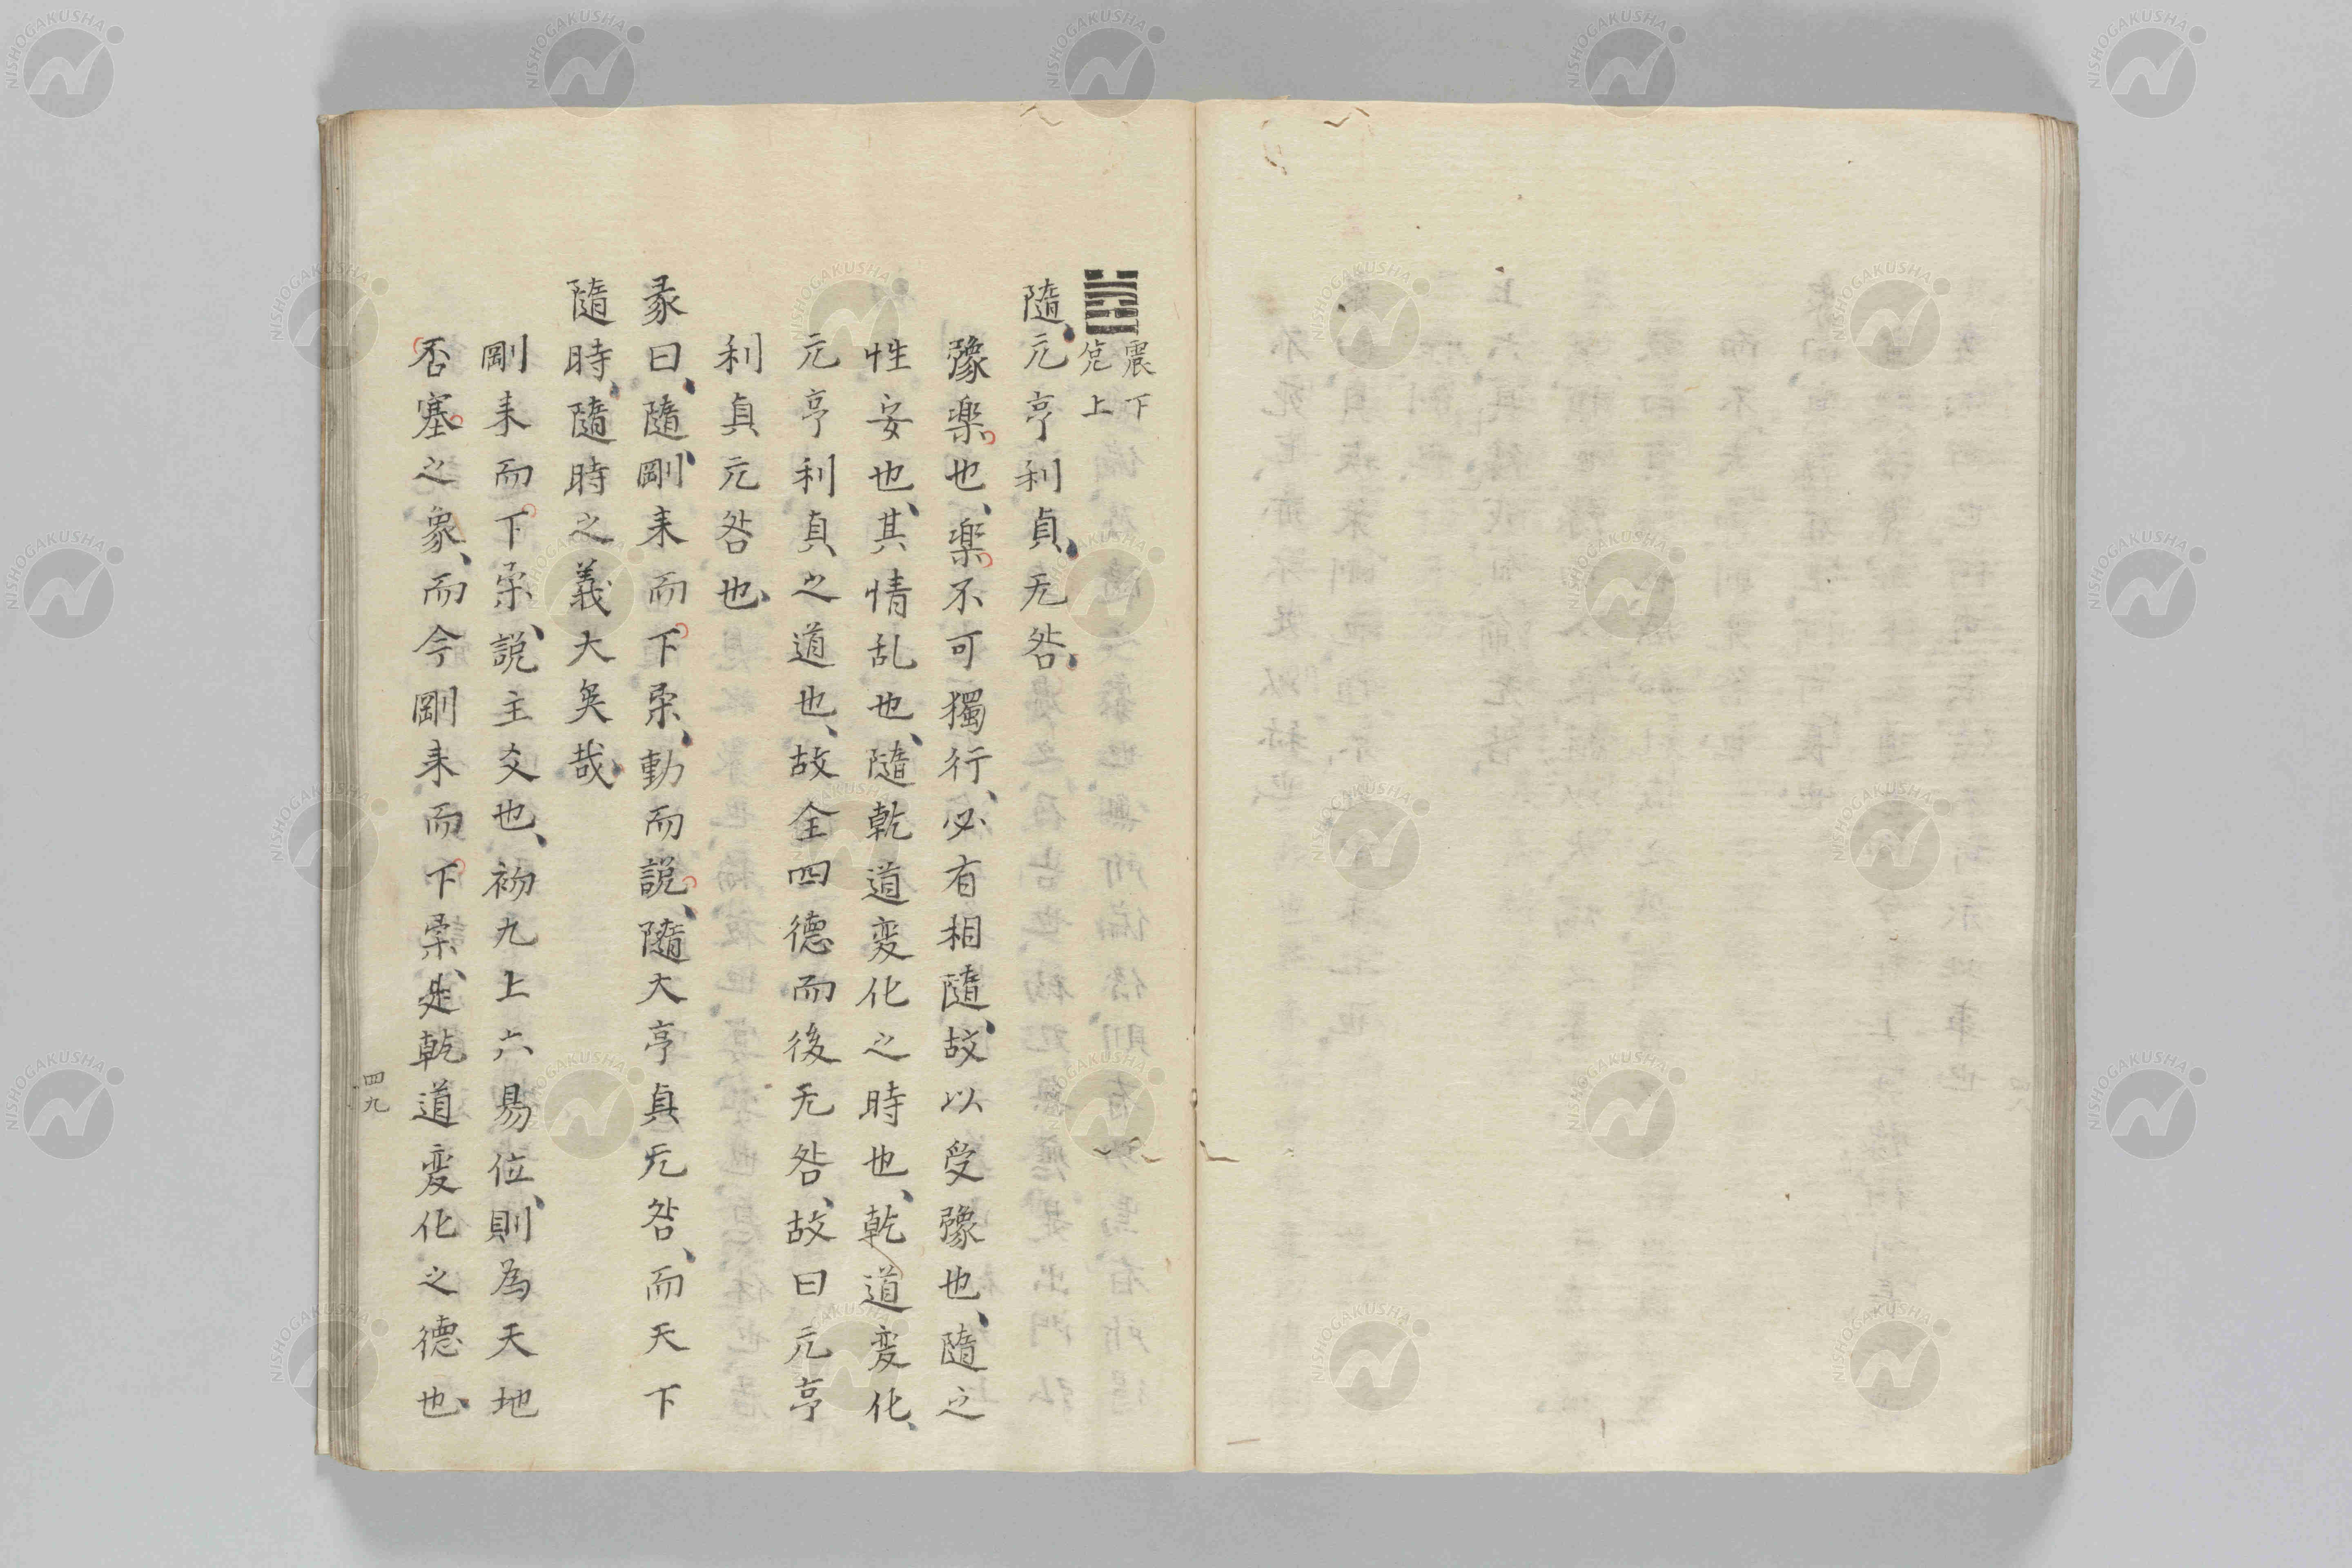 ䷐ 震下
兌上
隨、元亨利貞、无咎、
豫楽也、楽不可獨行、必有相隨、故以受豫也、隨之
性安也、其情乱也、隨乾道変化之時也、乾道変化、
元亨利貞之道也、故全四德而後无咎、故曰元亨
利貞元咎也、
彖曰、隨、剛来而下柔、動而説、隨大亨貞无咎、而天下
隨時、隨時之義大矣哉、
剛来而下柔、説主爻也、初九上六易位、則為天地
否塞之象、而今剛来而下柔、是乾道変化之德也、
四九
NISHOGAKUSHA